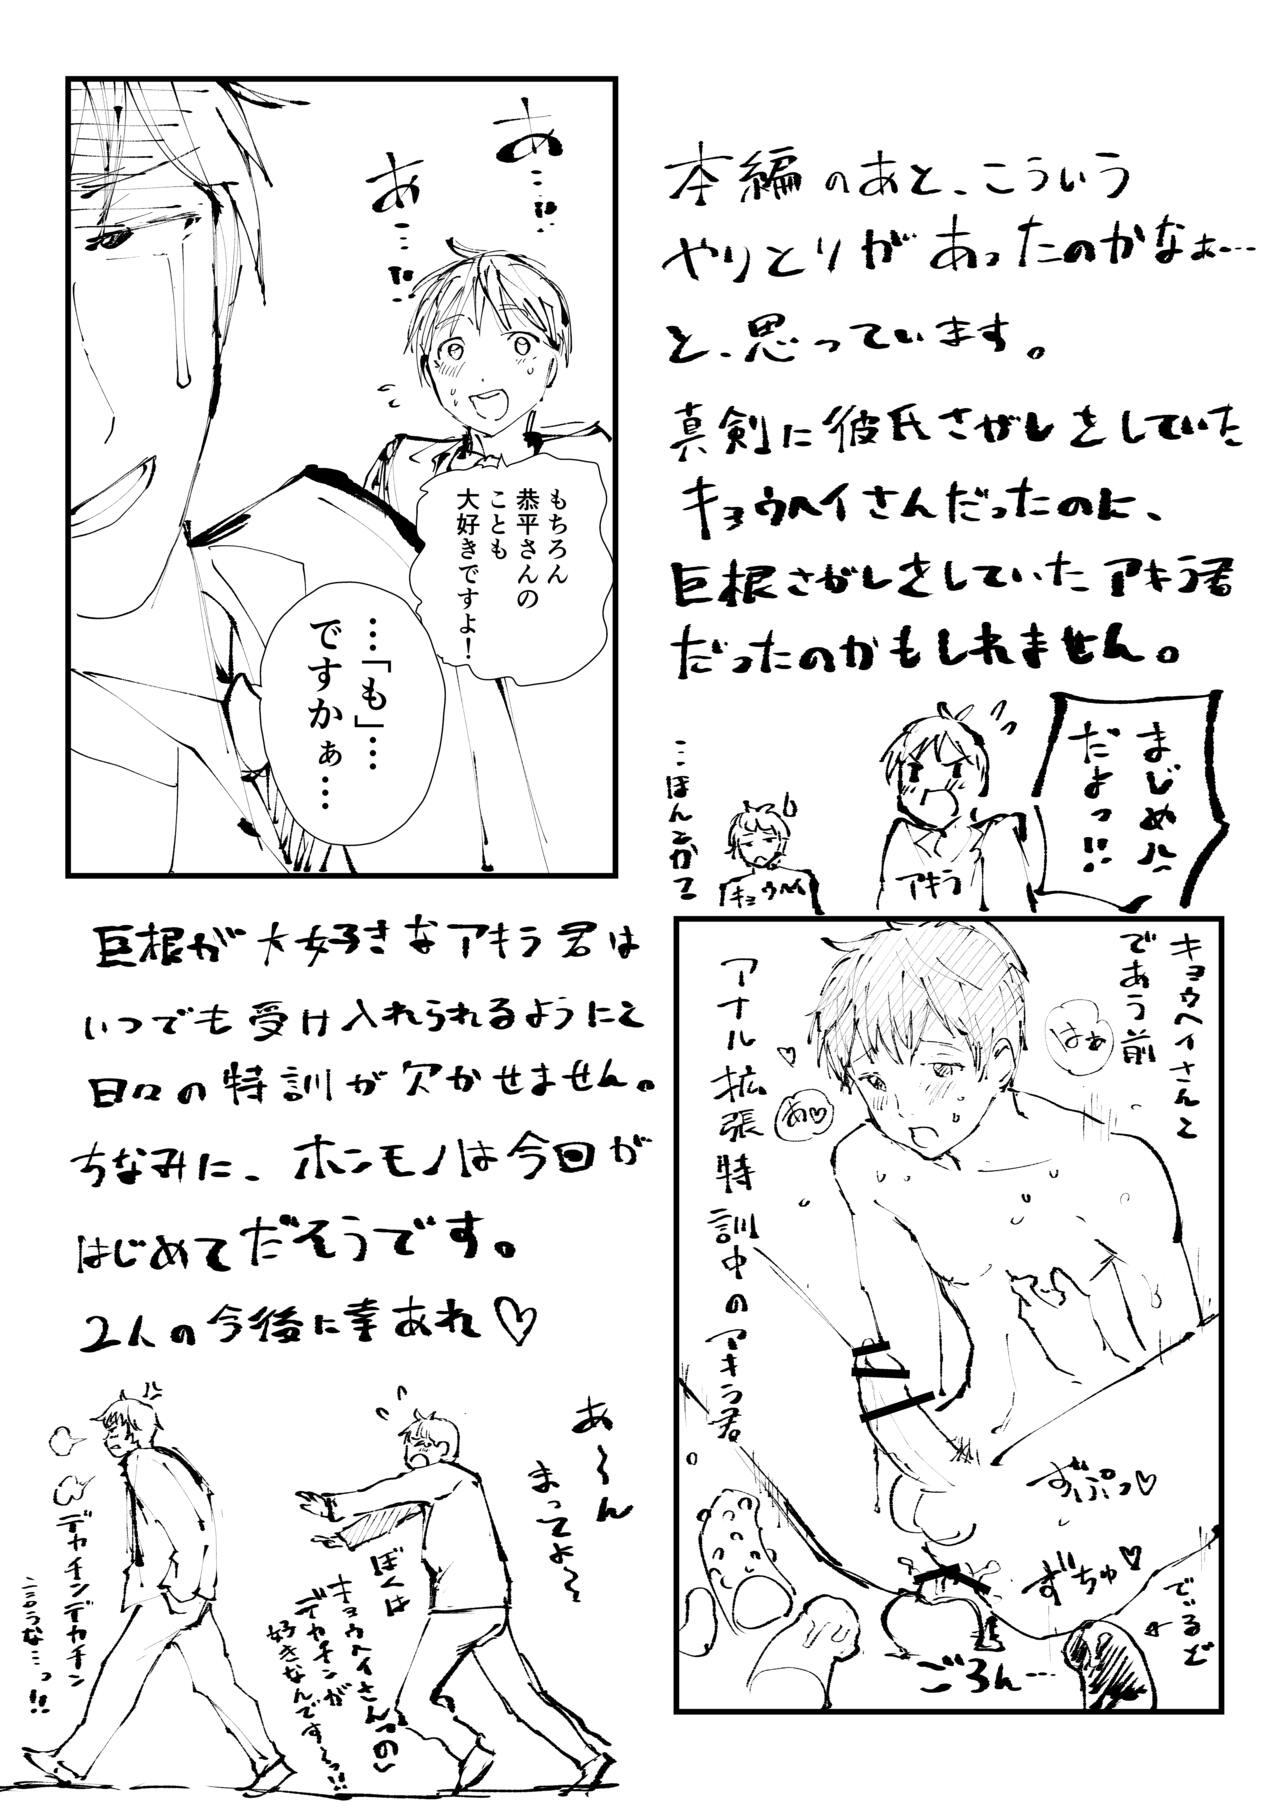 本編のあと、こういう
やりとりがあったのかなぁ…
と、思っています。
真剣に彼氏さがしをしていた
キョウヘイさんだったのに、
巨根さがしをしていたアキラ君
だったのかもしれません。
まじめに
だよっ!!
アキラ
キョウヘイ
…ほんとかて
あ…!!
あ…!!
もちろん
恭平さんの
ことも
大好きですよ!
…「も」…
ですかぁ…
キョウヘイさんと
であう前
アナル拡張特訓中のアキラ君
はぁ
あ♡
ずぷっ♡
ずちゅ♡
でぃるど
ごろん…
巨根が大好きなアキラ君は
いつでも受け入れられるようにと
日々の特訓が欠かせません。
ちなみに、ホンモノは今回が
はじめてだそうです。
2人の今後に幸あれ♡
あ~ん
まってよ~
ぼくは
キョウヘイさんの
デカチンが
好きなんです~っ!!
デカチンデカチン
言うな…っ!!